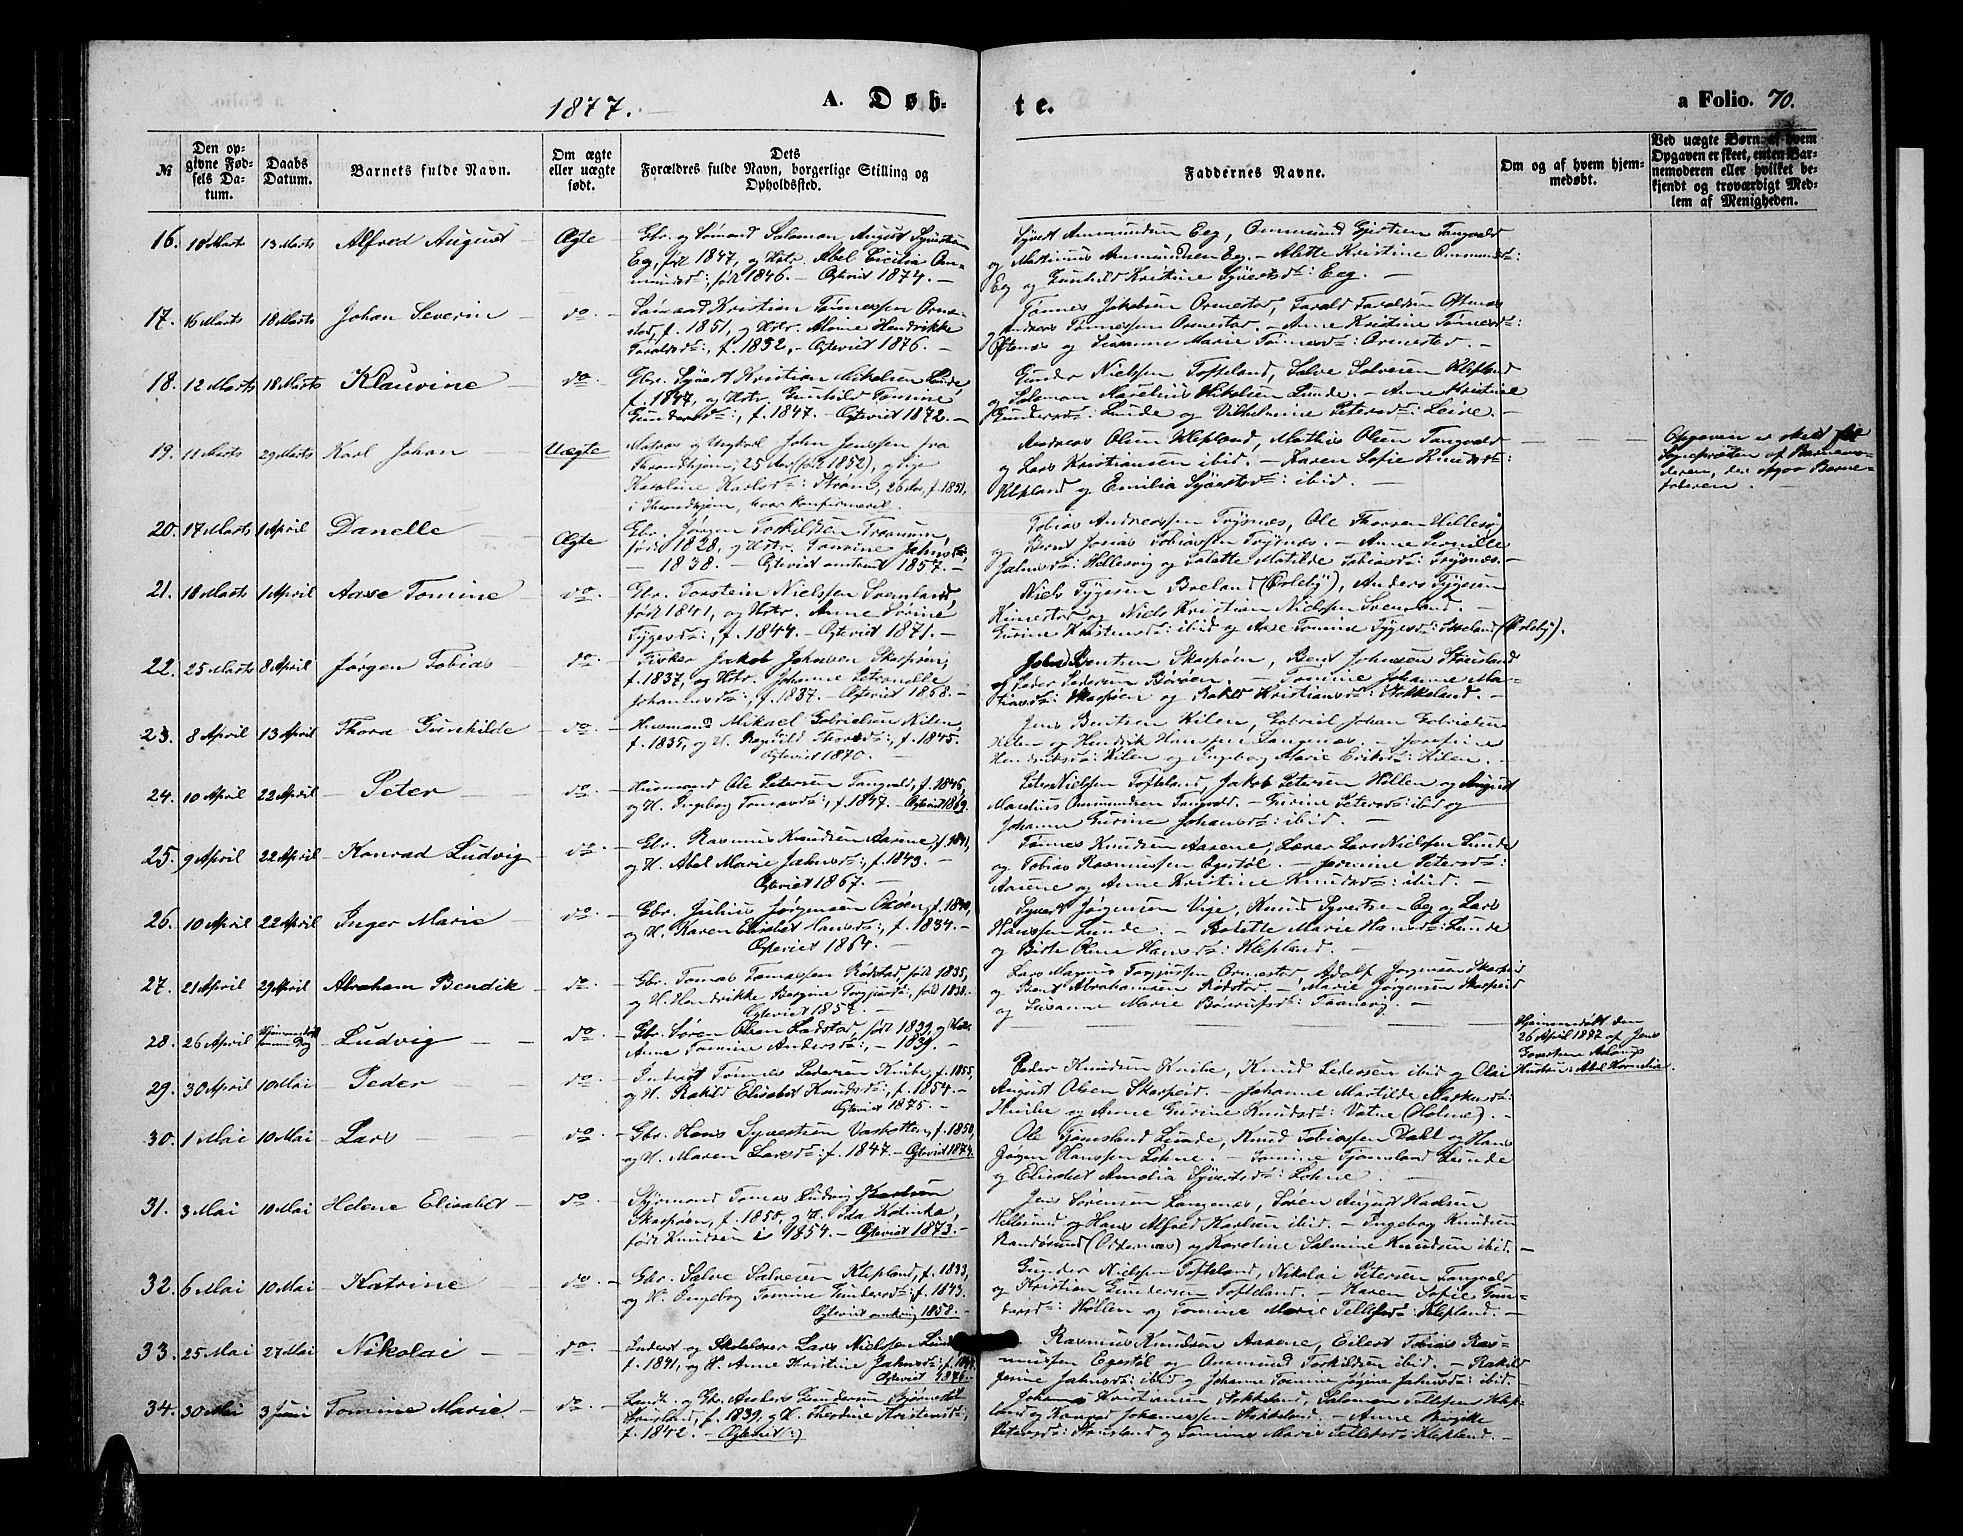 1877.
A. Døb-
te.
a Folio. 70.
№
Den op-
givne Fød-
sels Da-
tum.
Daabs
Datum.
Barnets fulde Navn.
Om ægte
eller uægte
født.
Dets
Forældres fulde Navn, borgerlige Stilling og
Opholdssted.
Faddernes Navne.
Om og af hvem hjem-
medøbt.
Ved uægte Børn: af hvem
Opgaven er skeet, enten Bar-
nemoderen eller hvilket be-
kjendt og troværdigt Med-
lem af Menigheden.
16. 13 Marts Alfred August Ægte
Gbr. og Sømand Salomon August Syvertsen
Eg, født 1847, og Hstr. Abel Cicilia Om-
mundsd:, født 1846. – Egteviet 1874. –
Syvert Ammundsen Eeg, Ommund Tangvald
og Mathinus Ammundsen Eeg. – Alette Kristine Ommundsd:
Eeg og Gunhild Kristine Syvertsd: Eeg. –
17. 16 Marts 18 Marts Johan Severin do.
Sømand Kristian Tønnessen Orme-
stad, f. 1851, og Hstr. Hendrikke
Taraldsd:, f. 1852, – Egteviet 1876. –
Tønnes Jakobsen Ormestad, Tarald Taraldsen Oftenes
Andreas Tønnessen Ormestad. – Anne Kristine Tønnesd:
Oftenes og Susanne Marie Tønnesd: Ormestad. –
18. 12 Marts 18 Marts Klauvine do.
Gbr. Syvert Kristian Mikelsen Lunde,
f. 1847, og Hstr. Gunhild Tomine
Gundersd:, f. 1847. – Egteviet 1872. –
Gunder Nielsen Tofteland, Salve Salvesen Klepland
og Salomon Marelius Mikelsen Lunde. – Anne Kristine
Gundersd: Lunde og Vilhelmine Petersd: Leire. –
19. 11 Marts 29 Marts Karl Johan Uægte
Matros og Ungkarl John Jenssen fra
Throndhjem, 25 Aar (født 1852), og Pige
Karoline Karlsd: Strøm, 26 Aar, f. 1851,
i Throndhjem, hvor konfirmeret.
Andreas Olsen Klepland, Mathis Olsen Tangvald
og Lars Kristiansen ibid. – Karen Sofie Knudsd:
Klepland og Emilia Syvertsd: ibid. –
Opgaven er skeet
Sognepresten af Barnemo-
deren, der opgav Barne-
faderen. –
20. 17 Marts 1 April Danelle Ægte
Gbr. Jørgen Torkildsen
født 1828, og Hstr. Tomine Jahnsd:
– 1838. – Egteviet omtrent 1857. –
Tobias Andreassen Trysnes, Ole Thorsen Hellesø
og Bernt Josias Tobiassen Trysnes. – Anne Pernille
Jahnsd: Hellevig og Talette Matilde Tobiasd: Trysnes. –
21. 18 Marts 1 April Aase Tomine do.
Gbr. Torstein Nielssen
født 1841, og Hstr. Anne Sørine
Tygesd:, f. 1844. – Egteviet 1871. –
Niels Tygesen Breland (Øvlebø), Anders Tygesen
Kimestad og Niels Kristian Nielssen
Gurine Kristensd: ibid og Aase Tomine Tygesd: (Øvlebø).
22. 25 Marts 8 April Jørgen Tobias do.
Fisker Jakob Johnsen Skarpøen,
f. 1837, og Hstr. Johanne Petronelle
Johannesd:, f. 1837. – Egteviet 1868. –
John Bentsen Skarpøen, Bent Johnsen Stausland
og Peder Pedersen Børøen. – Tomine Johanne Ma-
thiasd: Skarpøen og Rakild Kristiansd: Stokkeland. –
23. 8 April 13 April Thora Gunhilde do.
Husmand Mikael Gabrielsen Kilen,
f. 1835, og H. Ragnild Thorsd:, f. 1845.
Egteviet 1870. –
Jens Bentsen Kilen, Gabriel Johan Gabrielsen
Kilen og Hendrik Hanssen Langenes. – Josefine
Hendriksd: Kilen og Ingeborg Marie Eriksd: Kilen. –
24. 10 April 22 April Peter do.
Husmand Ole Petersen Tangvald, f. 1846,
og H. Ingeborg Tomasd:, f. 1847. Egteviet 1869.
Peter Nielssen Tofteland, Jakob Petersen Høllen og August
Marelius Ommundsen Tangvald. – Gurine Petersd: ibid og
Johanne Gurine Johansd: ibid. –
25. 9 April 22 April Konrad Ludvig do.
Gbr. Rasmus Knudsen Aasene, f. 1841,
og H. Abel Marie Jahnsd:, f. 1843. –
Egteviet 1867. –
Tønnes Knudsen Aasene, Lærer Lars Nielssen Lunde
og Tobias Rasmussen Egestøl. – Petersd:
Aasene og Anne Kristine Knudsd: ibid. –
26. 10 April 22 April Inger Marie do.
Gbr. Julius Jørgensen f. 1840,
og H. Karen Elisabet Hansd:, f. 1834. –
Egteviet 1864. –
Syvert Jørgensen Vige, Knud Syvertsen Eg og Lars
Hanssen Lunde. – Bolette Marie Hansd: Lunde
og Birte Oline Hansd: Klepland. –
27. 21 April 29 April Abraham Bendik do.
Gbr. Tomas Tomassen Rødstad, født 1835,
og H. Hendrikke Bergine Torgjusd:, født 1838.
Egteviet 1857. –
Lars Magnus Torgjussen Ormestad, Adolf Jørgensen Skarpeid
og Bent Abrahamsen Rødstad. – Marie Jørgensen Skarpeid
og Susanne Marie
28. 26 April Hjemmedøbt samme Dag Ludvig do.
Gbr. Søren Olsen født 1839, og Hstr.
Anne Tomine Andersd:, – 1839. –
Hjemmedøbt den
26 April 1877 af Jens
Hustru: Abel Kornelia.
29. 30 April 10 Mai Peder do.
Inderst Tønnes Pedersen Knibe, f. 1855,
og H. Rakild Elisabet Knudsd:, f. 1854. –
Egteviet 1875. –
Peder Knudsen Knibe, Knud Pedersen ibid og Olai
August Olsen Skarpeid. – Johanne Martilde
Knibe og Anne Gurine Knudsd: Vatne (Holme). –
30. 1 Mai 10 Mai Lars do.
Gbr. Hans Syvertsen Vashatten, f. 1850,
og H. Maren Larsd:, f. 1847. – Egteviet 1874.
Ole Tjømsland Lunde, Knud Tobiassen Dahl og Hans
Jørgen Hanssen Løhne. – Tomine Tjømsland Lunde
og Elisabet Amalia Syvertsd: Løhne. –
31. 3 Mai 10 Mai Helene Elisabet do.
Styrmand Tomas Ludvig Karlsen
Skarpøen, f. 1850, og H. Ida Katinka,
født Knudsen i 1854. – Egteviet 1873. –
Jens Sørensen Langenes, Søren August Madsen
Hellesund og Hans Alfred Karlsen ibid. – Ingeborg Knudsen
Randøsund (Oddernæs) og Karoline Salmine Knudsen ibid. –
32. 6 Mai 10 Mai Katrine do.
Gbr. Salve Salvesen Klepland, f. 1833,
og H. Ingeborg Tomine Gundersd:, f. 1843.
Egteviet omkring 1858. –
Gunder Nielsen Tofteland, Nikolai Petersen Tangvald
og Kristian Gundersen Tofteland. – Karen Sofie Gun-
dersd: Høllen og Tomine Marie Tellefsd: Klepland. –
33. 25 Mai 27 Mai Nikolai do.
Inderst og Skolelærer Lars Nielssen Lunde,
f. 1841, og H. Anne Kristine Jahnsd:, f.
Egteviet 1876. –
Rasmus Knudsen Aasene, Eilert Tobias Ras-
mussen Egestøl og Ommund Torkildsen ibid. – Rakild
Jahnsd: ibid og Johanne Tomine Jahnsd: ibid.
34. 30 Mai 3 Juni Tomine Marie do.
og Gbr. Anders Gundersen
f. 1839, og H. Kristensd:,
f. 1842. – Egteviet:)
Johannes Kristiansen Stokkeland, Salomon Tellefsen Klep-
land og Konrad Johannessen Stokkeland. – Anne Birgitte
Petersd: Stausland og Tomine Marie Tellefsd: Klepland. –